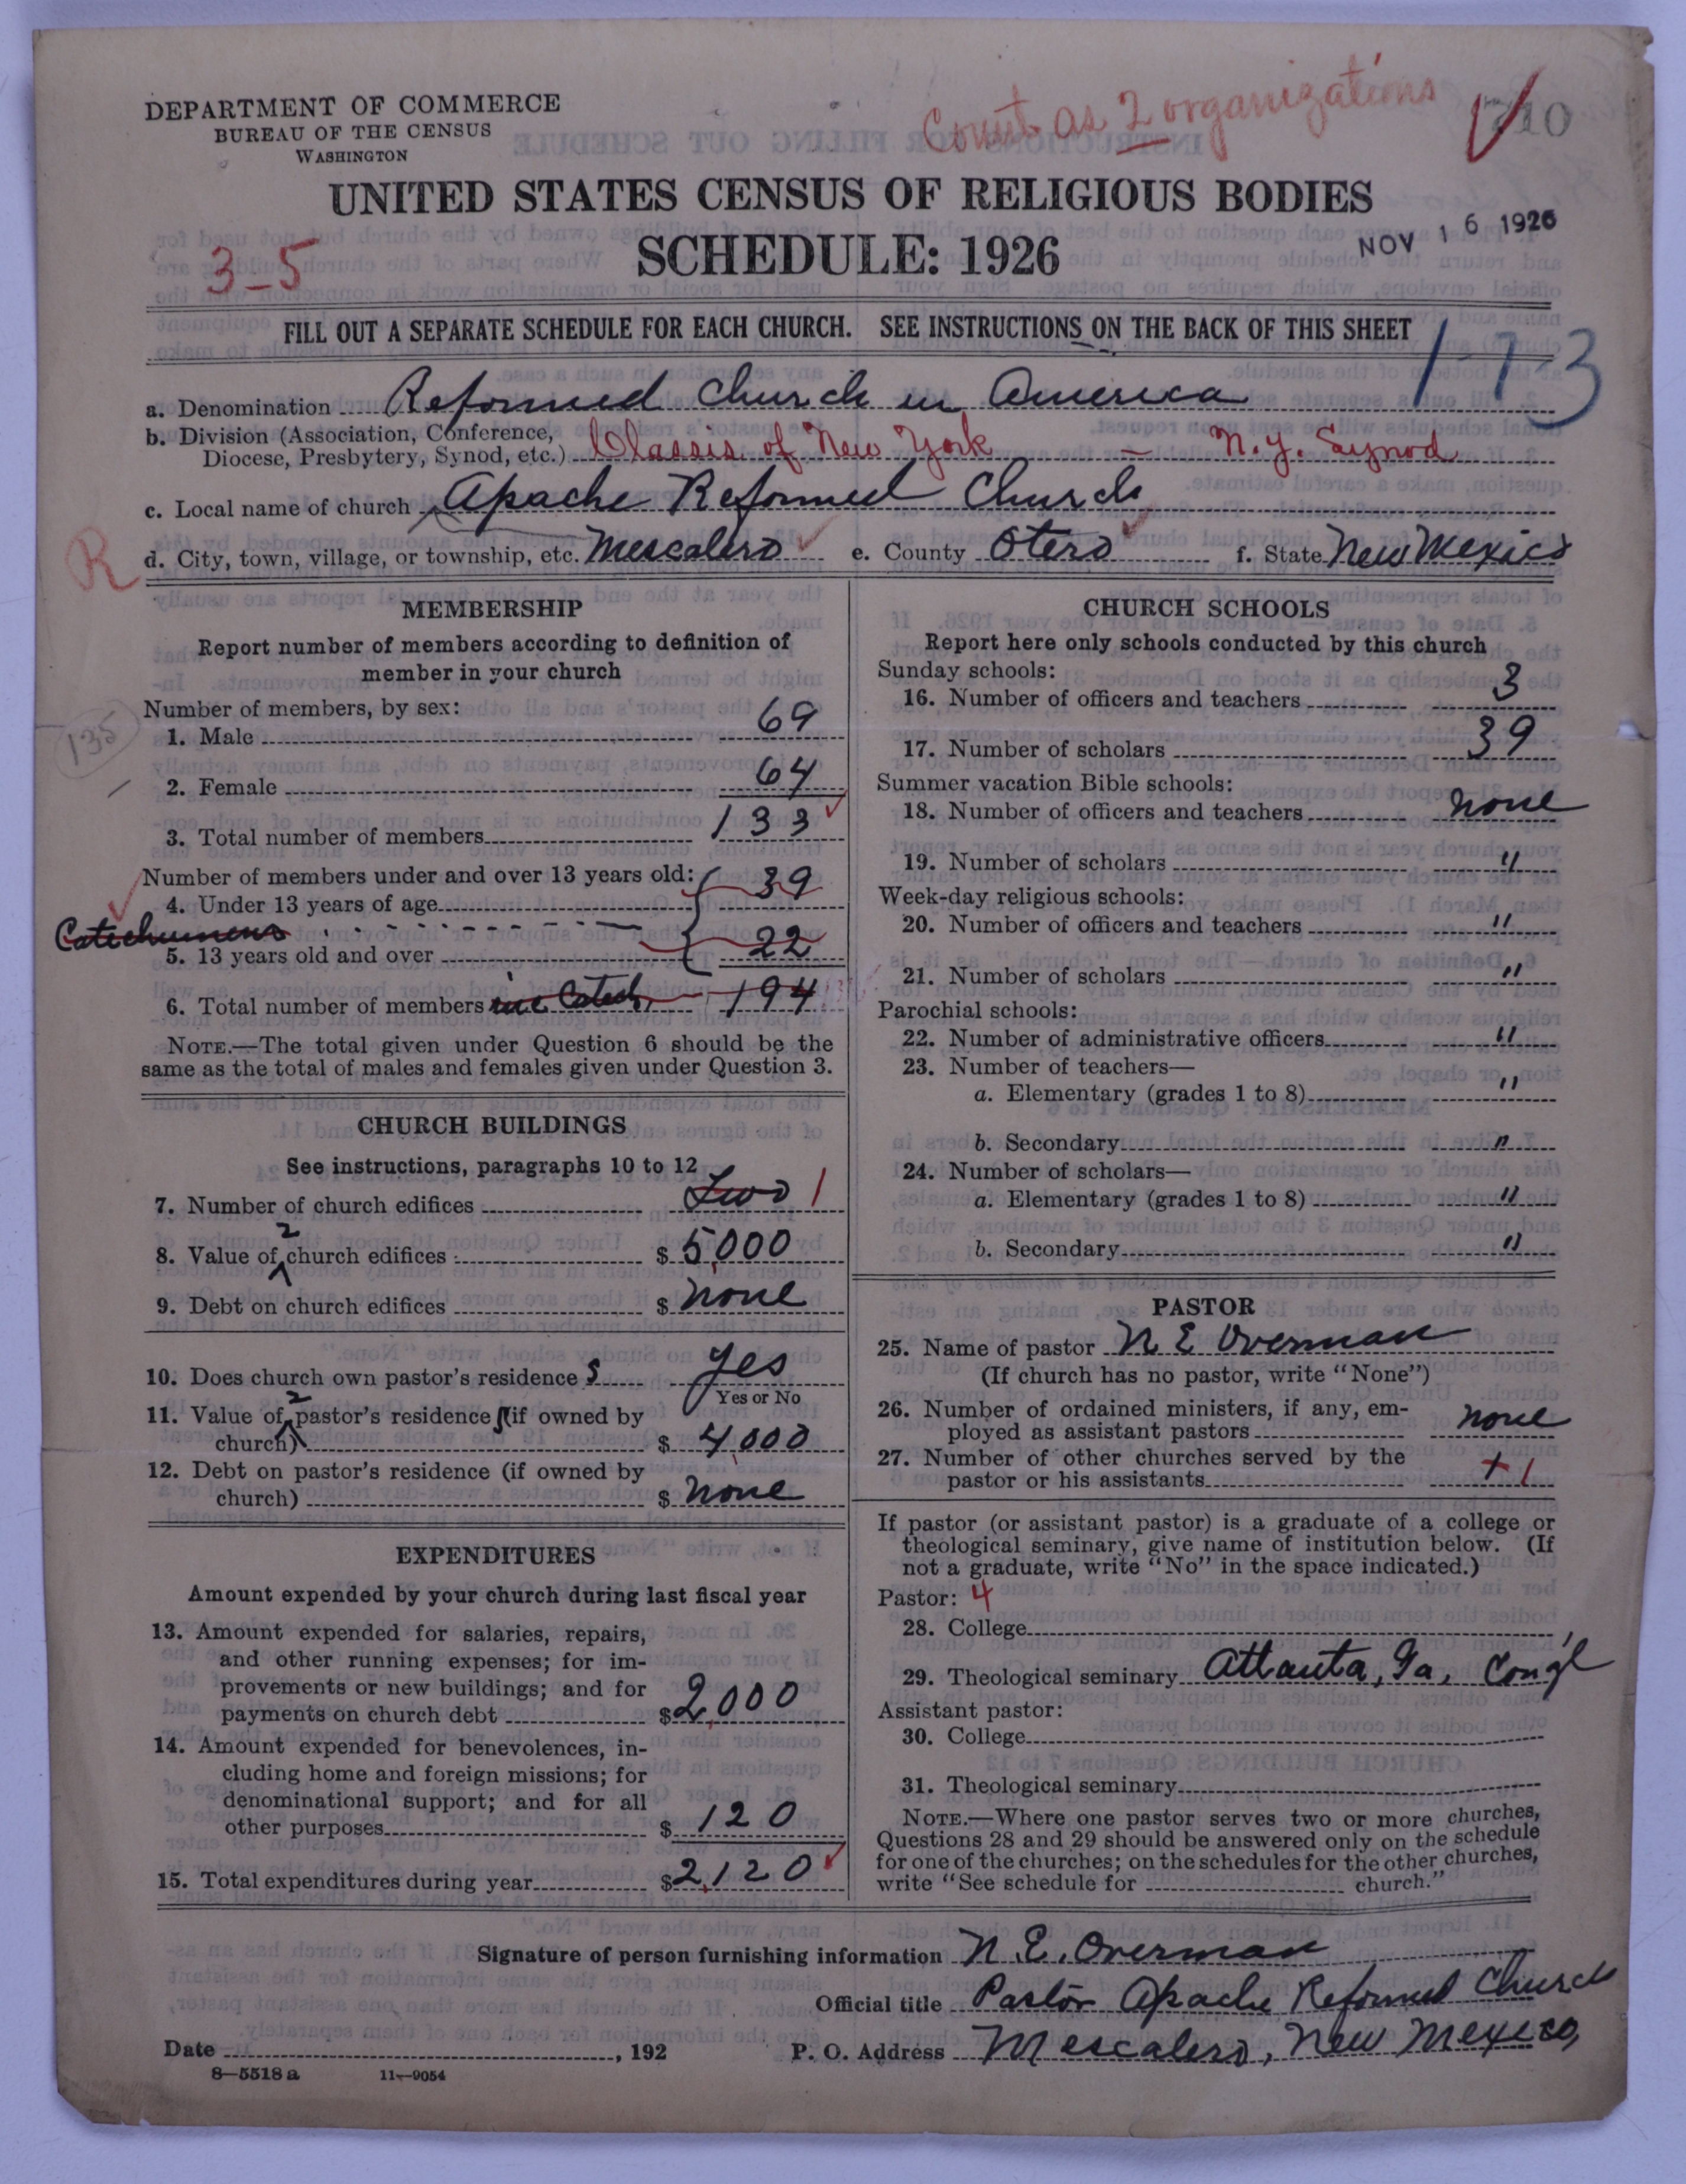 DEPARTMENT OF COMMERCE
BUREAU OF THE CENSUS
WASHINGTON
Count as 2 organizations
UNITED STATES CENSUS OF RELIGIOUS BODIES
SCHEDULE: 1926
NOV 16 1926
3-5
FILL OUT A SEPARATE SCHEDULE FOR EACH CHURCH. SEE INSTRUCTIONS ON THE BACK OF THIS SHEET
173
a. Denomination Reformed Church in America
b. Division (Association, Conference,
Diocese, Presbytery, Synod, etc.) Classis of New York - N.Y. Synod
c. Local name of church Apache Reformed Church
R
d. City, town, village, or township, etc. Mescalero e. County Otero f. State New Mexico
MEMBERSHIP
Report number of members according to definition of
member in your church
Number of members, by sex:
135
1. Male 69
2. Female 64
3. Total number of members 133
Number of members under and over 13 years old:
4. Under 13 years of age 39
Catechumens
5. 13 years old and over 22
6. Total number of members inc Catech 194
NOTE.—The total given under Question 6 should be the
same as the total of males and females given under Question 3.
CHURCH BUILDINGS
See instructions, paragraphs 10 to 12
7. Number of church edifices Two 1
8. Value of 2 church edifices $ 5,000
9. Debt on church edifices $ None
10. Does church own pastor's residence s Yes
Yes or No
11. Value of 2 pastor's residence s (if owned by
church) $ 4,000
12. Debt on pastor's residence (if owned by
church) $ None
EXPENDITURES
Amount expended by your church during last fiscal year
13. Amount expended for salaries, repairs,
and other running expenses; for im-
provements or new buildings; and for
payments on church debt $ 2,000
14. Amount expended for benevolences, in-
cluding home and foreign missions; for
denominational support; and for all
other purposes $ 120
15. Total expenditures during year $ 2,120
CHURCH SCHOOLS
Report here only schools conducted by this church
Sunday schools:
16. Number of officers and teachers 3
17. Number of scholars 39
Summer vacation Bible schools:
18. Number of officers and teachers None
19. Number of scholars "
Week-day religious schools:
20. Number of officers and teachers "
21. Number of scholars "
Parochial schools:
22. Number of administrative officers "
23. Number of teachers—
a. Elementary (grades 1 to 8) "
b. Secondary "
24. Number of scholars—
a. Elementary (grades 1 to 8) "
b. Secondary "
PASTOR
25. Name of pastor N E Overman
(If church has no pastor, write "None")
26. Number of ordained ministers, if any, em-
ployed as assistant pastors None
27. Number of other churches served by the
pastor or his assistants + 1
If pastor (or assistant pastor) is a graduate of a college or
theological seminary, give name of institution below. (If
not a graduate, write "No" in the space indicated.)
Pastor: 4
28. College
29. Theological seminary Atlanta, Ga, Cong'l
Assistant pastor:
30. College
31. Theological seminary
NOTE.—Where one pastor serves two or more churches,
Questions 28 and 29 should be answered only on the schedule
for one of the churches; on the schedules for the other churches,
write "See schedule for church."
Signature of person furnishing information N. E. Overman
Official title Pastor Apache Reformed Church
Date , 192
P. O. Address Mescalero, New Mexico,
8—5518 a 11—9054